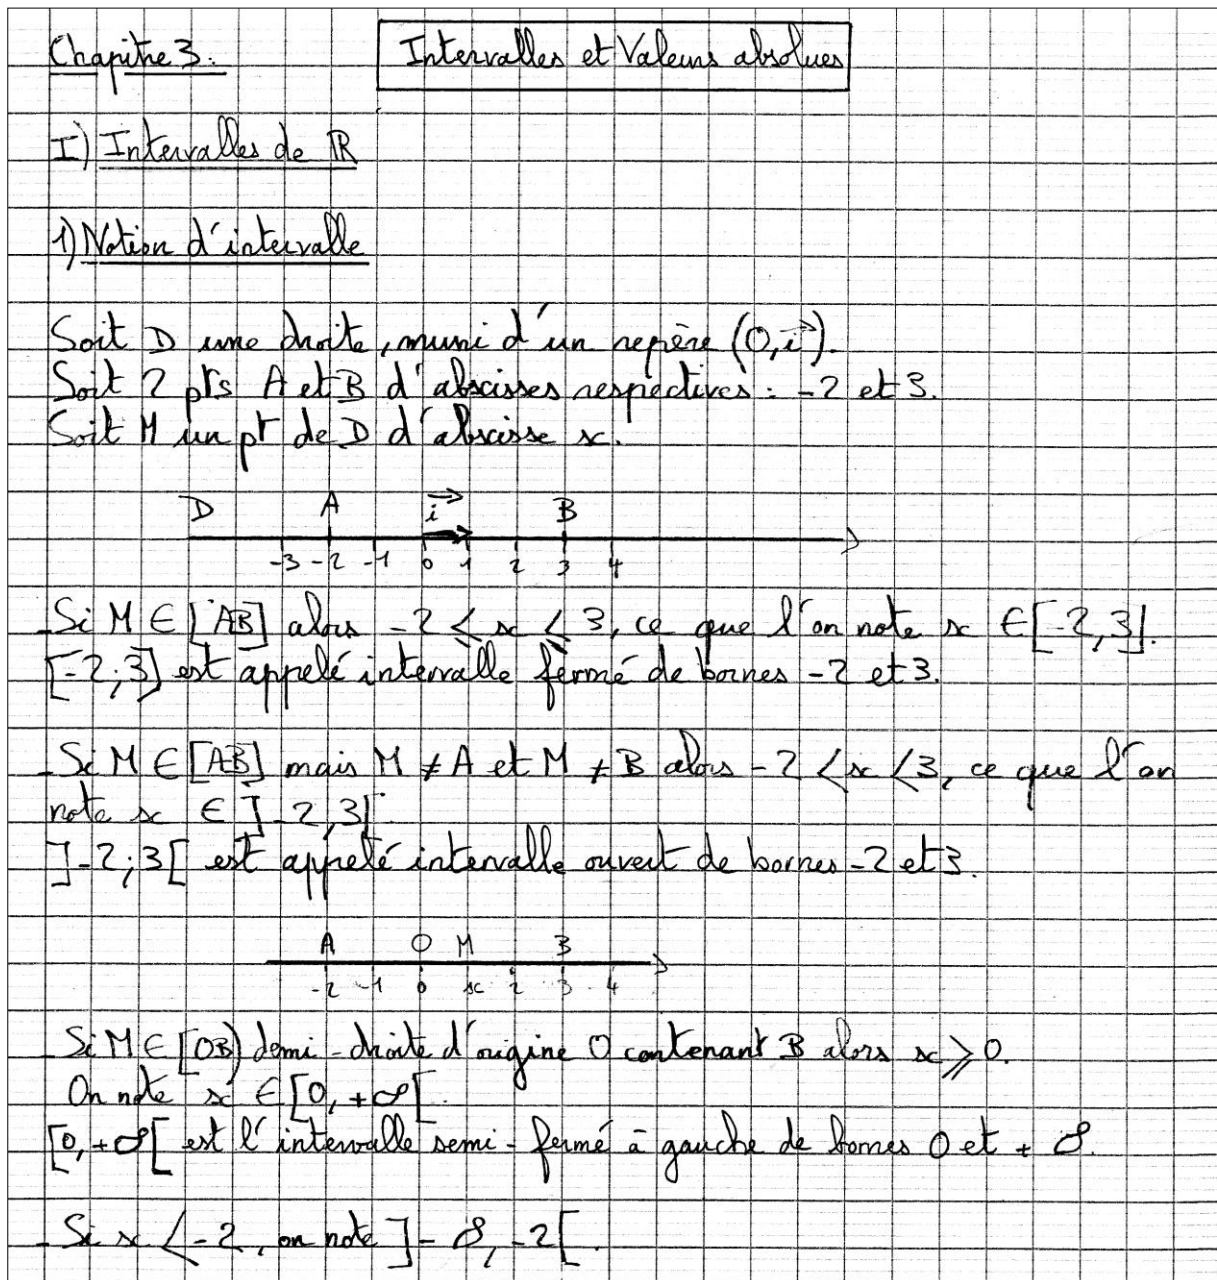 Chapitre 3: Intervalles et Valeurs absolues
I) Intervalles de ℝ
1) Notion d'intervalle
Soit D une droite, muni d'un repère (O,i⃗).
Soit 2 pts A et B d'abscisses respectives : -2 et 3.
Soit M un pt de D d'abscisse x.
D A i⃗ B
-3 -2 -1 0 1 2 3 4
- Si M ∈ [AB] alors -2 ⩽ x ⩽ 3, ce que l'on note x ∈ [-2,3].
[-2;3] est appelé intervalle fermé de bornes -2 et 3.
- Si M ∈ [AB] mais M ≠ A et M ≠ B alors -2 < x < 3, ce que l'on
note x ∈ ]-2,3[.
]-2;3[ est appelé intervalle ouvert de bornes -2 et 3.
A O M B
-2 -1 0 x 2 3 4
- Si M ∈ [OB) demi-droite d'origine O contenant B alors x ⩾ 0.
On note x ∈ [0,+∞[.
[0,+∞[ est l'intervalle semi-fermé à gauche de bornes 0 et +∞.
- Si x < -2, on note ]-∞,-2[.